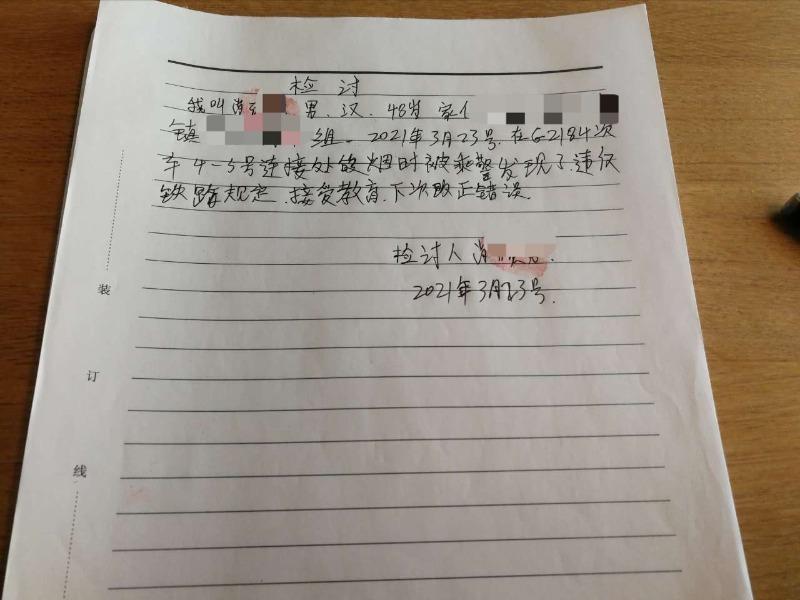 检讨
我叫 男、汉、48岁 家住
镇 组。2021年3月23号.在G2184次
车4-5号连接处放烟时被乘警发现了.违仅
铁路规定.接受教育.下次改正错误.
检讨人 肖
2021年3月23号.
装
订
线